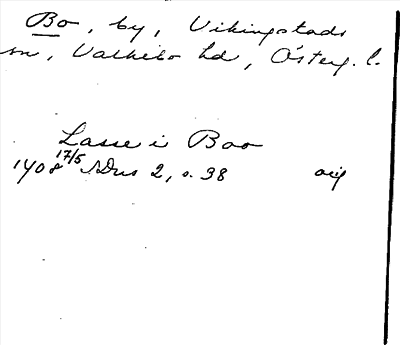 Bo, by, Vikingstads
sn, Valkebo hd, Österg. l.
Lasse i Boo
1408 17/5 SDns 2, s. 38 orig